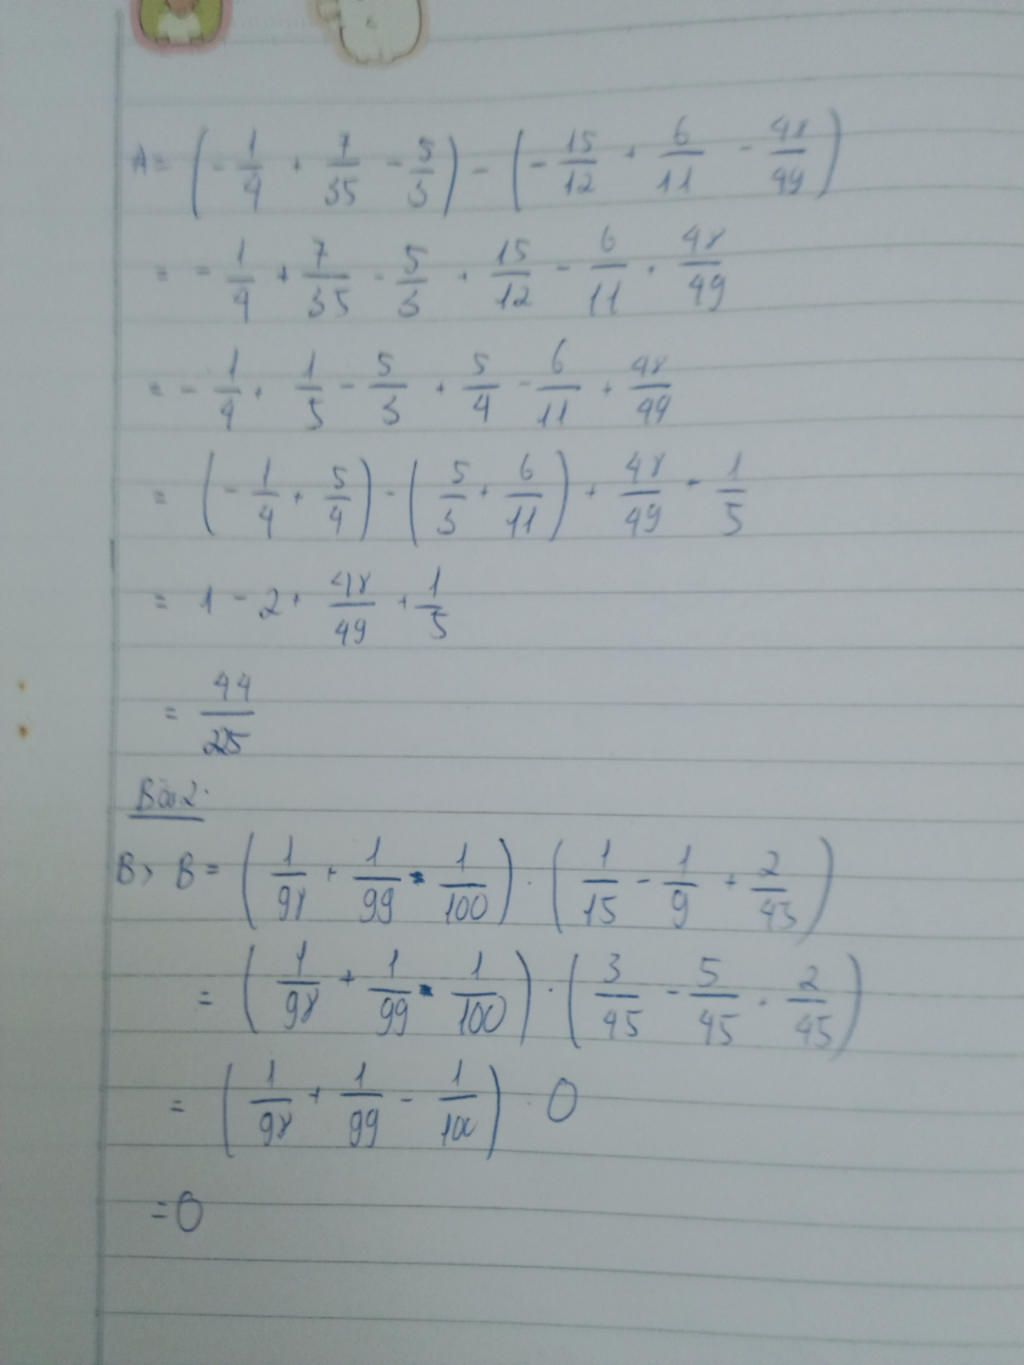 A = (-1/4 + 7/35 - 5/3) - (-15/12 + 6/11 - 48/49)
= -1/4 + 7/35 - 5/3 + 15/12 - 6/11 + 48/49
= -1/4 + 1/5 - 5/3 + 5/4 - 6/11 + 48/49
= (-1/4 + 5/4) - (5/3 + 6/11) + 48/49 - 1/5
= 1 - 2 + 48/49 + 1/5
= 44/225
Bài 2:
B) B = (1/98 + 1/99 - 1/100) . (1/15 - 1/9 + 2/45)
= (1/98 + 1/99 - 1/100) . (3/45 - 5/45 + 2/45)
= (1/98 + 1/99 - 1/100) . 0
= 0